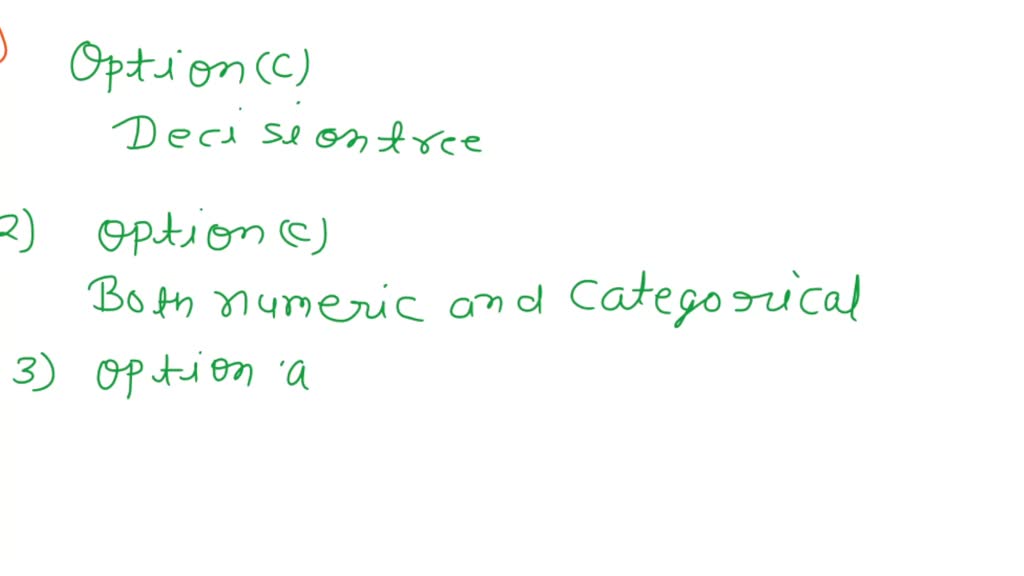 )
Option (C)
Decision tree
2) option (c)
Both numeric and Categorical
3) option a